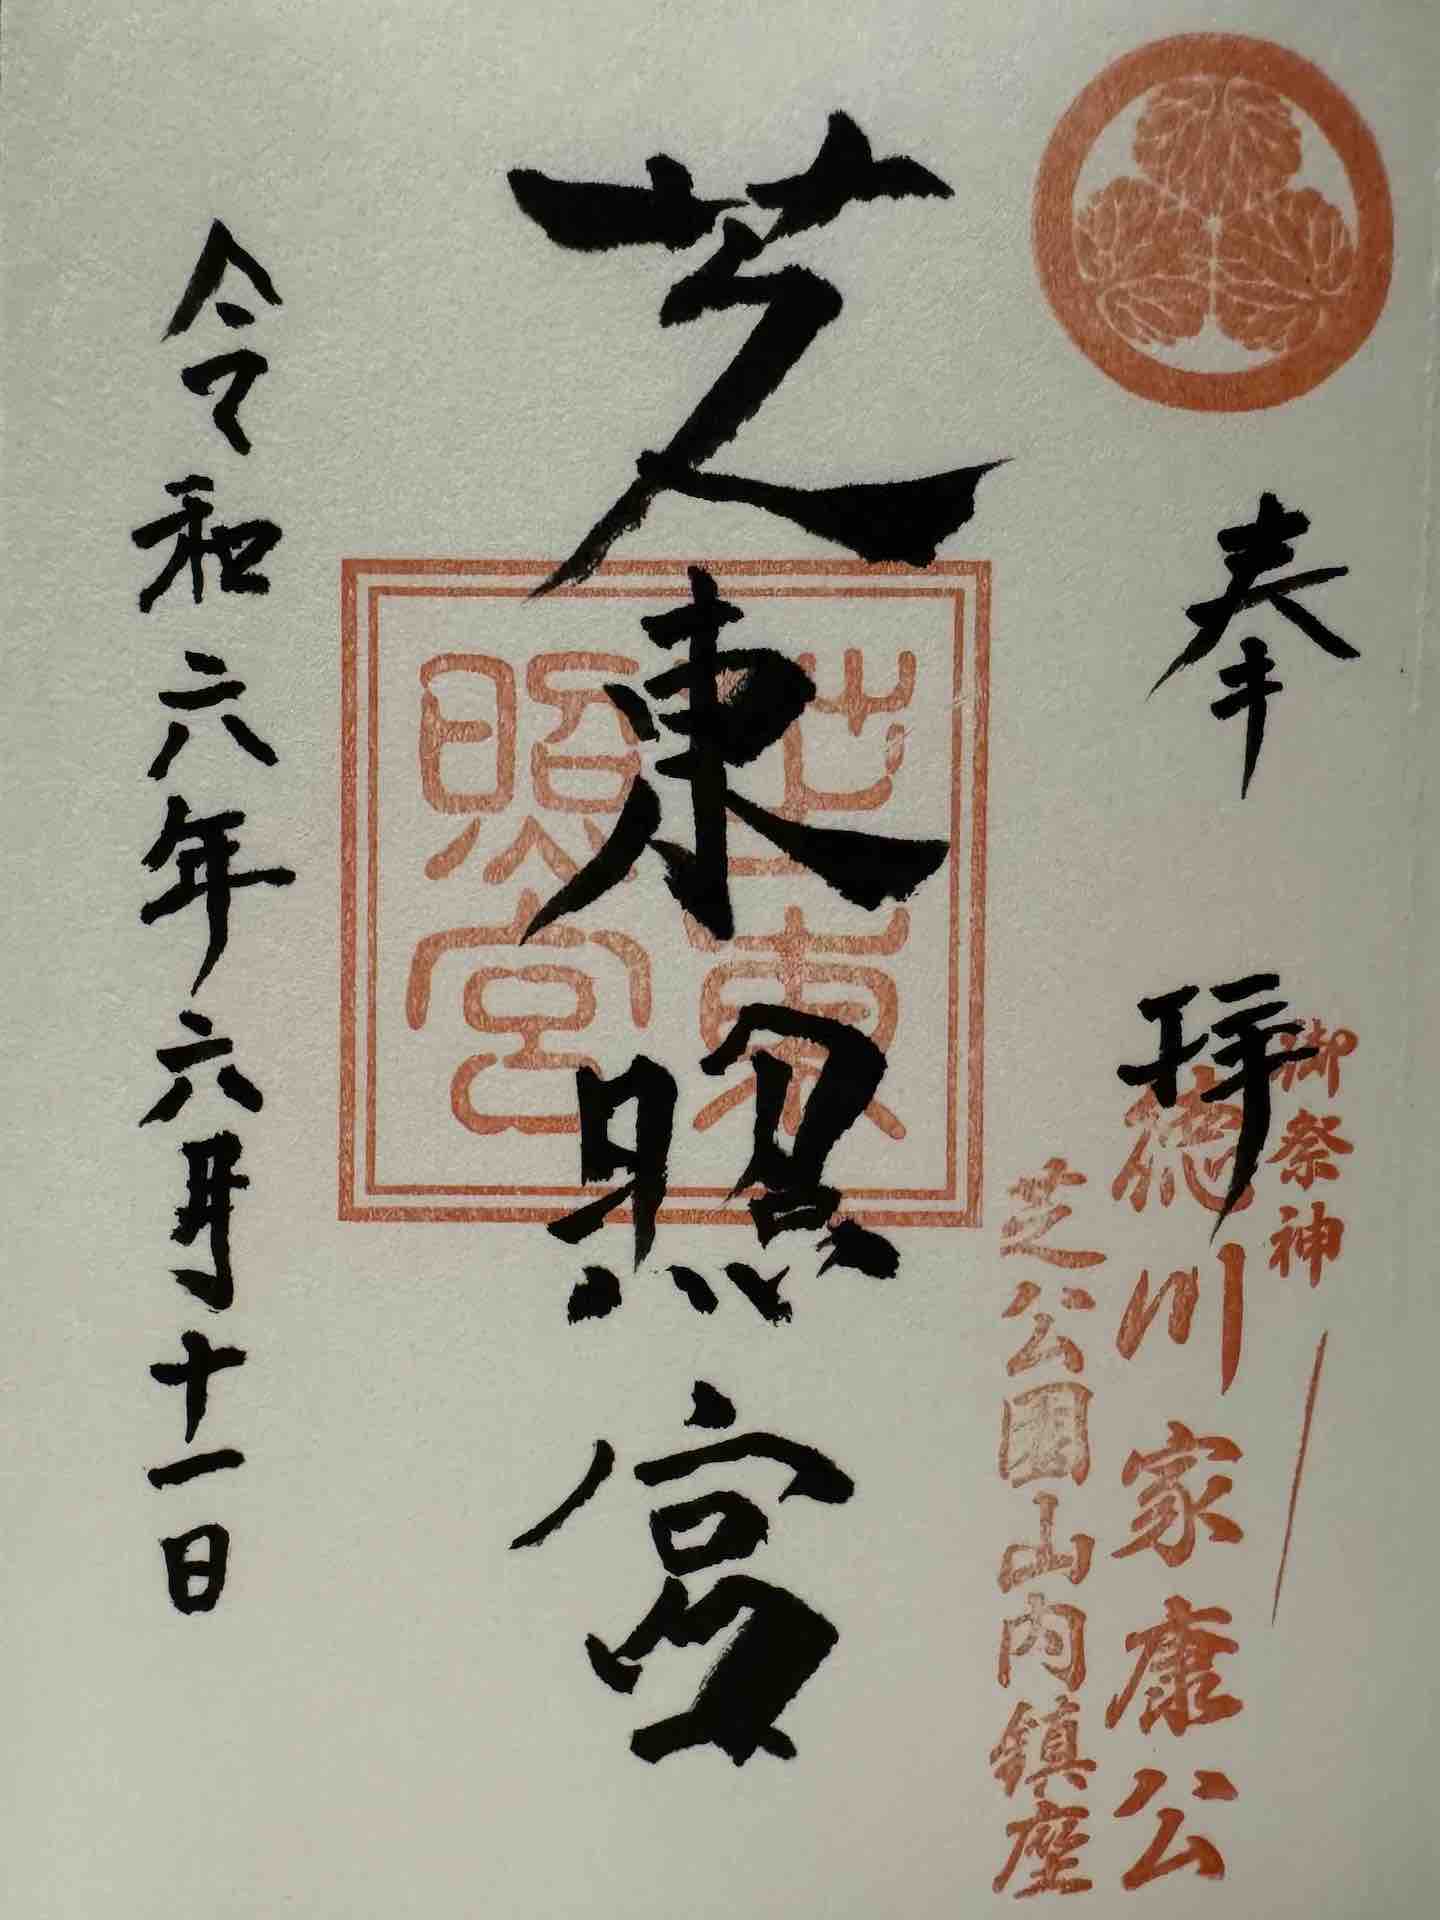 奉拝
御祭神
徳川家康公
芝公園山内鎮座
芝東照宮
芝東照宮
令和六年六月十一日